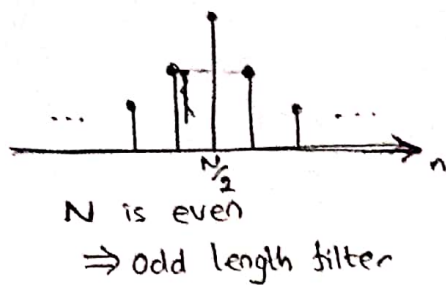 ... ...
N/2 n
N is even
⇒ odd length filter